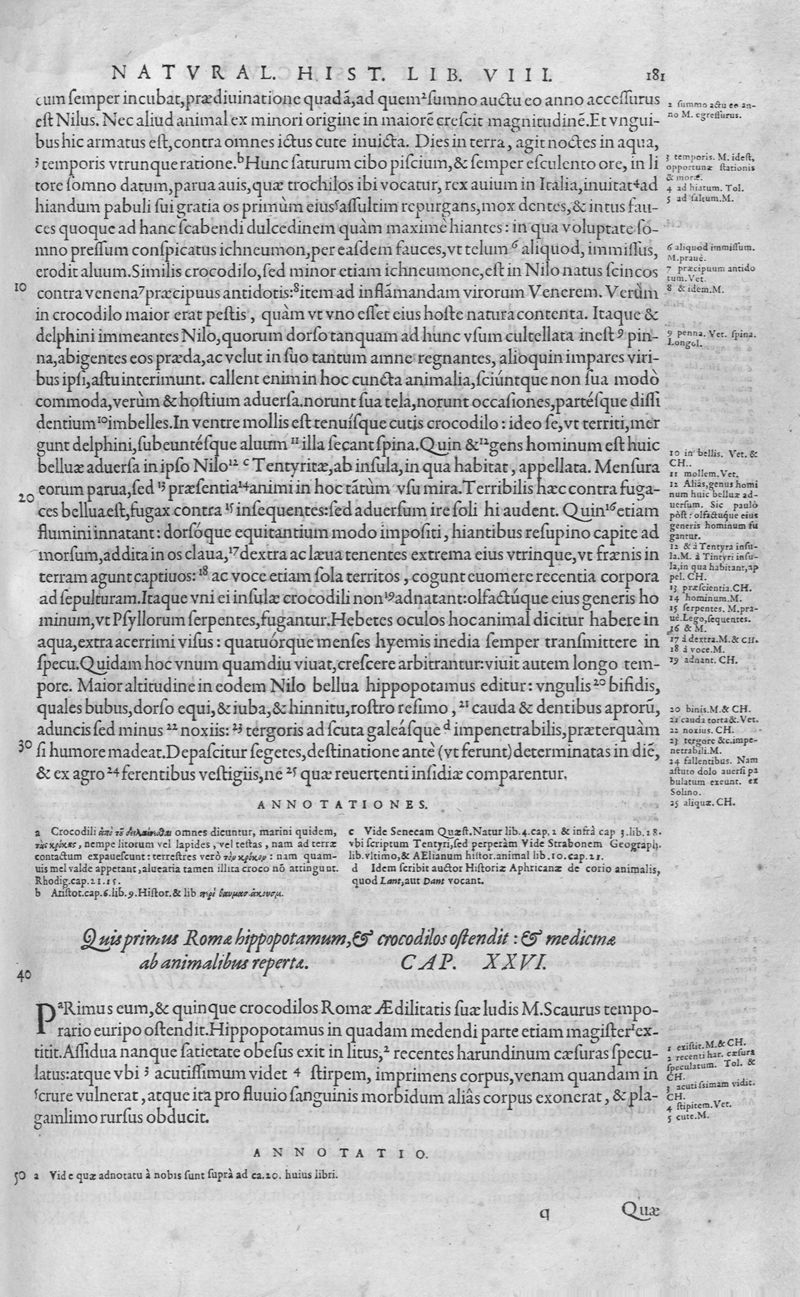 NATVRAL. HIST. LIB. VIII. 181
cum ſemper incubat, prædiuinatione quadã, ad quem² ſumno auctu eo anno acceſſurus
eſt Nilus. Nec aliud animal ex minori origine in maiorẽ creſcit magnitudinẽ. Et vngui-
bus hic armatus eſt, contra omnes ictus cute inuicta. Dies in terra, agit noctes in aqua,
³ temporis vtrunque ratione. ᵇHunc ſaturum cibo piſcium, & ſemper eſculento ore, in li
tore ſomno datum, parua auis, quæ trochilos ibi vocatur, rex auium in Italia, inuitat⁴ ad
hiandum pabuli ſui gratia os primùm eius⁵ aſſultim repurgans, mox dentes, & intus fau-
ces quoque ad hanc ſcabendi dulcedinem quàm maximè hiantes: in qua voluptate ſo-
mno preſſum conſpicatus ichneumon, per eaſdem fauces, vt telum ⁶ aliquod, immiſſus,
erodit aluum. Similis crocodilo, ſed minor etiam ichneumone, eſt in Nilo natus ſcincos
10 contra venena⁷ præcipuus antidotis: ⁸item ad inflãmandam virorum Venerem. Verùm
in crocodilo maior erat peſtis, quàm vt vno eſſet eius hoſte natura contenta. Itaque &
delphini immeantes Nilo, quorum dorſo tanquam ad hunc vſum cultellata ineſt ⁹ pin-
na, abigentes eos præda, ac velut in ſuo tantum amne regnantes, alioquin impares viri-
bus ipſi, aſtu interimunt. callent enim in hoc cuncta animalia, ſciúntque non ſua modò
commoda, verùm & hoſtium aduerſa. norunt ſua tela, norunt occaſiones, partéſque diſſi
dentium¹⁰ imbelles. In ventre mollis eſt tenuíſque cutis crocodilo: ideo ſe, vt territi, mer
gunt delphini, ſubeuntéſque aluum ¹¹ illa ſecant ſpina. Quin &¹² gens hominum eſt huic
belluæ aduerſa in ipſo Nilo¹² ᶜ Tentyritæ, ab inſula, in qua habitat, appellata. Menſura
20 eorum parua, ſed ¹³ præſentia¹⁴ animi in hoc tãtùm vſu mira. Terribilis hæc contra fuga-
ces bellua eſt, fugax contra ¹⁵ inſequentes: ſed aduerſum ire ſoli hi audent. Quin¹⁶ etiam
flumini innatant: dorſóque equitantium modo impoſiti, hiantibus reſupino capite ad
morſum, addita in os claua, ¹⁷ dextra ac læua tenentes extrema eius vtrinque, vt frænis in
terram agunt captiuos: ¹⁸ ac voce etiam ſola territos, cogunt euomere recentia corpora
ad ſepulturam. Itaque vni ei inſulæ crocodili non¹⁹ adnatant: olfactúque eius generis ho
minum, vt Pſyllorum ſerpentes, fugantur. Hebetes oculos hoc animal dicitur habere in
aqua, extra acerrimi viſus: quatuórque menſes hyemis inedia ſemper tranſmittere in
ſpecu. Quidam hoc vnum quamdiu viuat, creſcere arbitrantur: viuit autem longo tem-
pore. Maior altitudine in eodem Nilo bellua hippopotamus editur: vngulis²⁰ bifidis,
quales bubus, dorſo equi, & iuba, & hinnitu, roſtro reſimo, ²¹ cauda & dentibus aprorũ,
aduncis ſed minus ²² noxiis: ²³ tergoris ad ſcuta galeáſque ᵈ impenetrabilis, præterquàm
30 ſi humore madeat. Depaſcitur ſegetes, deſtinatione antè (vt ferunt) determinatas in diẽ,
& ex agro ²⁴ ferentibus veſtigiis, ne ²⁵ quæ reuertenti inſidiæ comparentur.
2 ſummo actu eo an-
no M. egreſſurus.
3 temporis. M. ideſt,
opportunæ ſtationis
& moræ.
4 ad hiatum. Tol.
5 ad ſaltum. M.
6 aliquod immiſſum.
M. prauè.
7 præcipuum antido
tum. Vet.
8 & idem. M.
9 penna. Vet. ſpina.
Longol.
10 in bellis. Vet. &
CH..
11 mollem. Vet.
12 Aliâs, genus homi
num huic belluæ ad-
uerſum. Sic paulò
pòſt: olfactúque eius
generis hominum fu
gantur.
12 & à Tentyra inſu-
la. M. à Tintyri inſu-
la, in qua habitant, ap
pel. CH.
13 præſcientia. CH.
14 hominum. M.
15 ſerpentes. M. pra-
uè. Lego, ſequentes.
16 & M.
17 à dextra. M. & CH.
18 à voce. M.
19 adnant. CH.
20 binis. M. & CH.
21 cauda torta &. Vet.
22 noxius. CH.
23 tergore &c. impe-
netrabili. M.
24 fallentibus. Nam
aſtuto dolo auerſi pa
bulatum exeunt. ex
Solino.
25 aliquæ. CH.
ANNOTATIONES.
a Crocodili ἀπὸ τοῦ omnes dicuntur, marini quidem,
nempe litorum vel lapides, vel teſtas, nam ad terræ
contactum expaueſcunt: terreſtres verò τὸν κρόκον: nam quam-
uis mel valde appetant, aluearia tamen illita croco nõ attingunt.
Rhodig. cap. 21. 15.
b Ariſtot. cap. 6. lib. 9. Hiſtor. & lib περὶ
c Vide Senecam Quæſt. Natur lib. 4. cap. 2 & infrà cap 3. lib. 28.
vbi ſcriptum Tentyri, ſed perperàm Vide Strabonem Geograph.
lib. vltimo, & AElianum hiſtor. animal lib. 10. cap. 21.
d Idem ſcribit auctor Hiſtoriæ Aphricanæ de corio animalis,
quod Lant, aut Dant vocant.
Quis primus Romæ hippopotamum, & crocodilos oſtendit: & medicina
ab animalibus reperta. CAP. XXVI.
40
PᵃRimus eum, & quinque crocodilos Romæ Ædilitatis ſuæ ludis M. Scaurus tempo-
rario euripo oſtendit. Hippopotamus in quadam medendi parte etiam magiſter¹ ex-
titit. Aſſidua nanque ſatietate obeſus exit in litus, ² recentes harundinum cæſuras ſpecu-
latus: atque vbi ³ acutiſſimum videt ⁴ ſtirpem, imprimens corpus, venam quandam in
⁵crure vulnerat, atque ita pro fluuio ſanguinis morbidum aliâs corpus exonerat, & pla-
gam limo rurſus obducit.
1 exiſtit. M. & CH.
2 recenti har. cæſura
ſpeculatum. Tol. &
CH.
3 acutiſſimam vidit.
CH.
4 ſtipitem. Vet.
5 cute. M.
ANNOTATIO.
50 a Vide quæ adnotatu à nobis ſunt ſuprà ad ca. 20. huius libri.
q Quæ